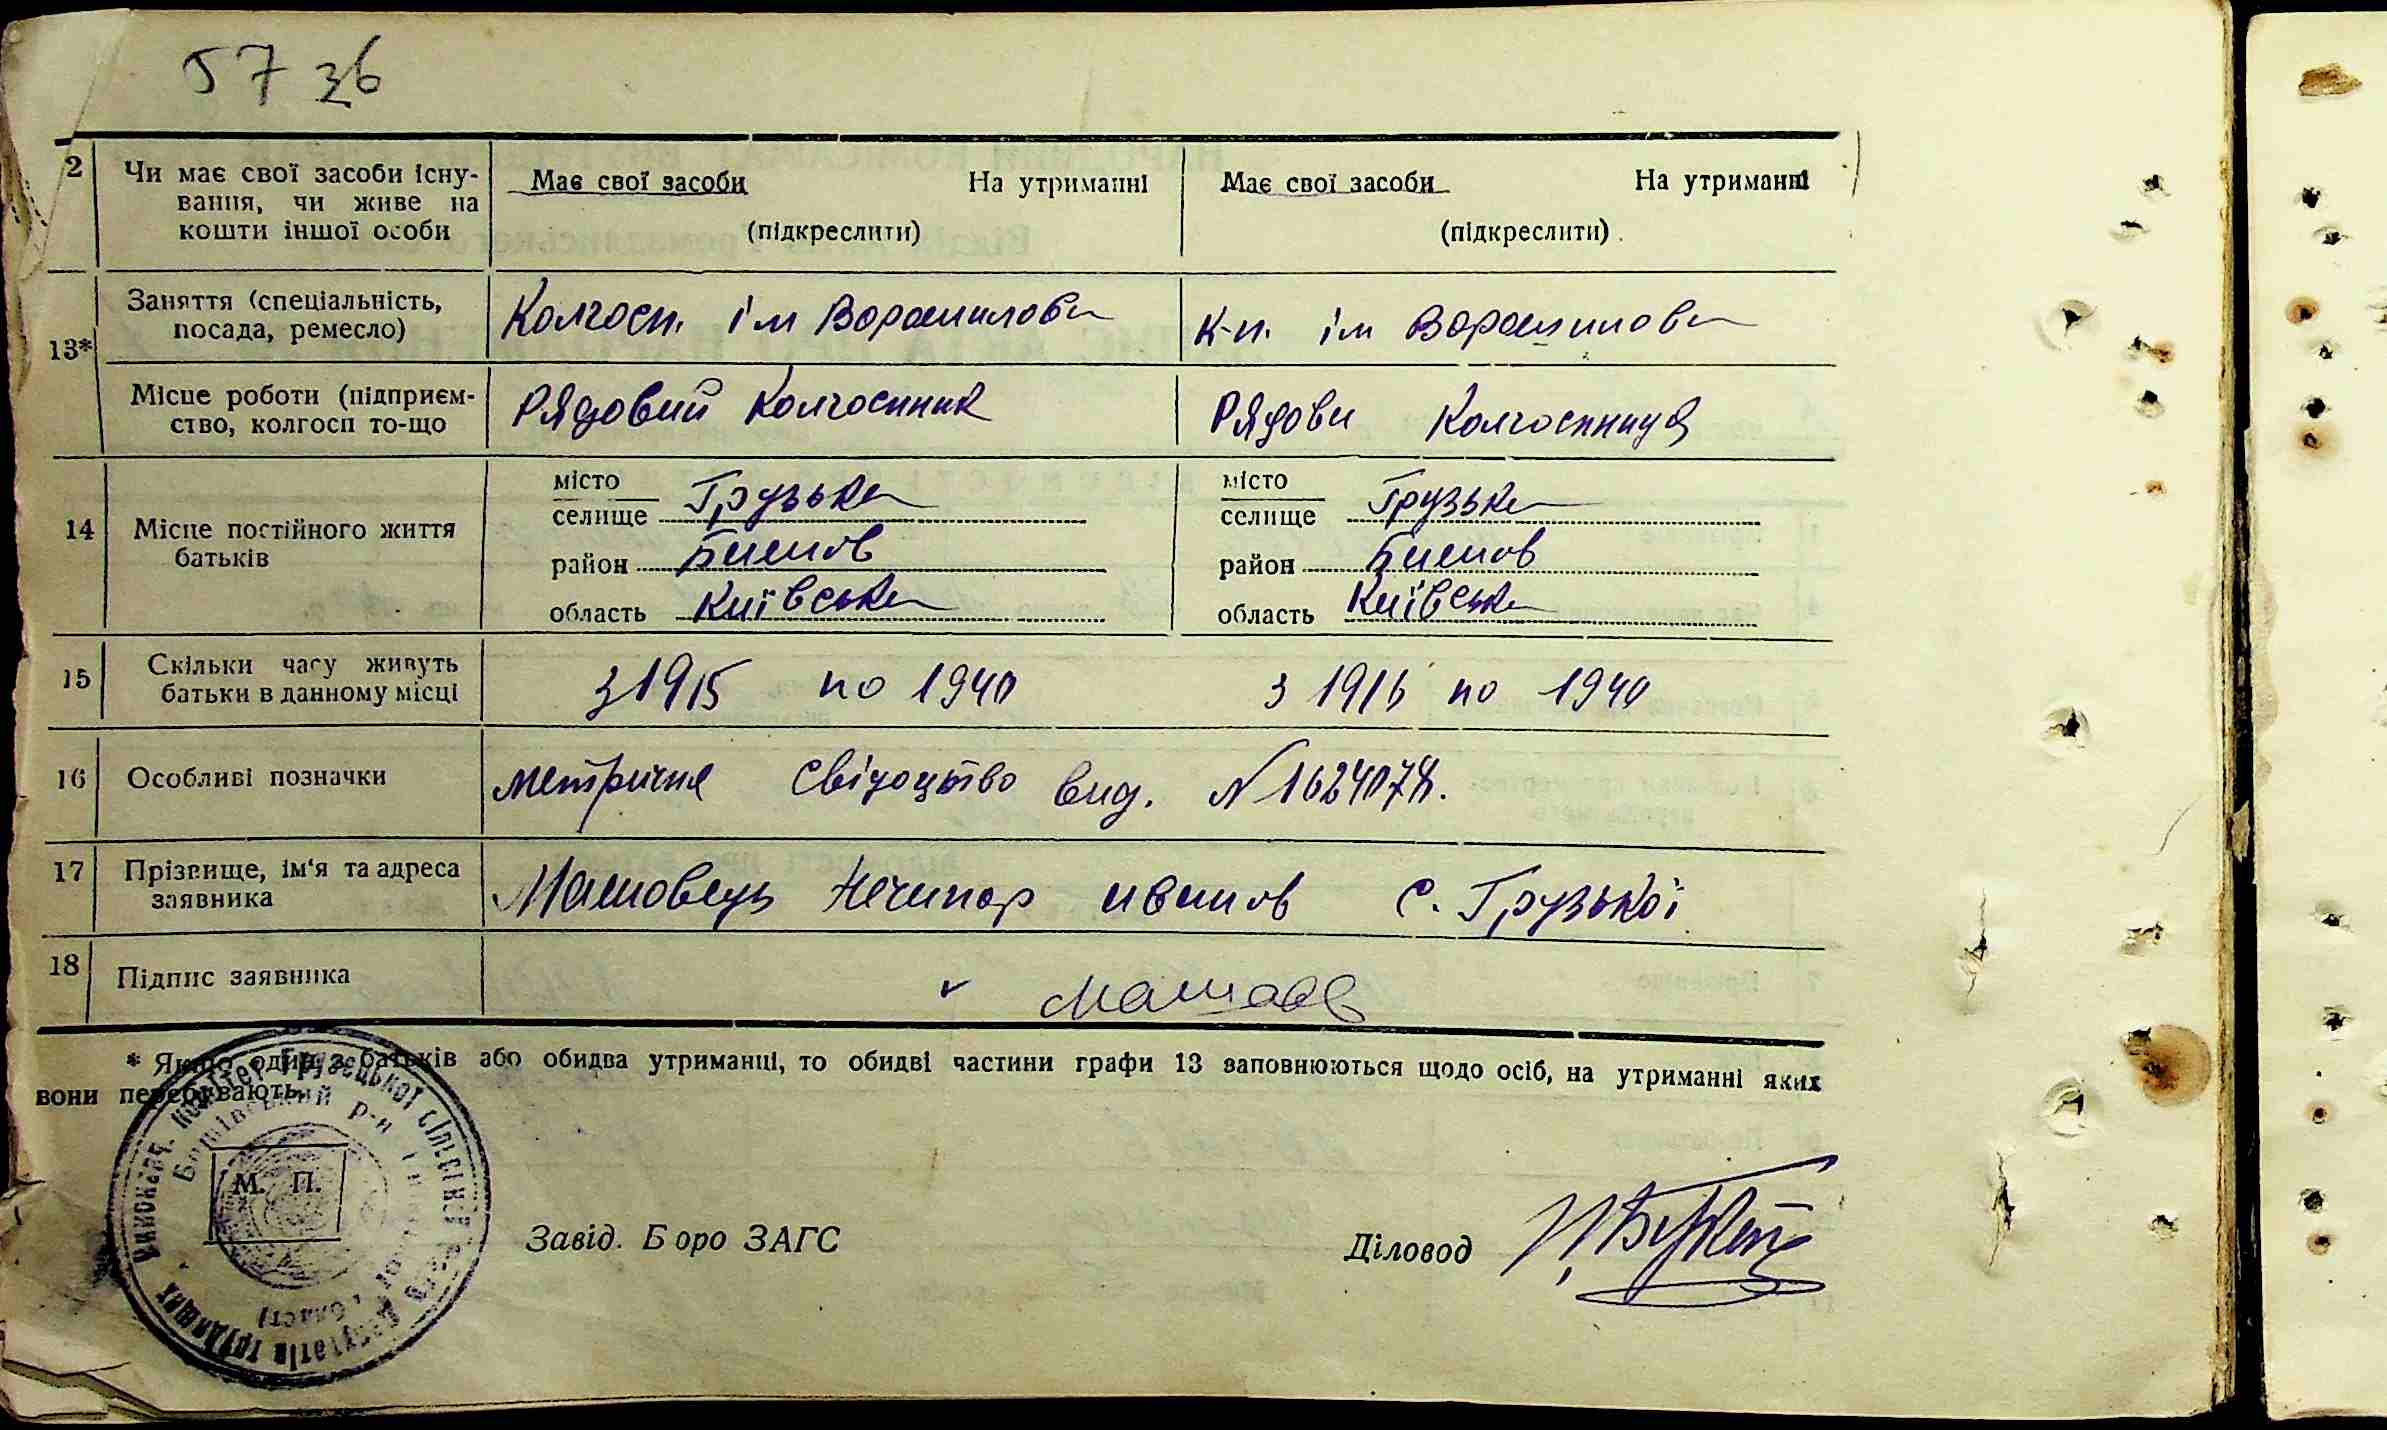 57 зв
2 Чи має свої засоби існу- Має свої засоби На утриманні Має свої засоби На утриманні
вання, чи живе на
кошти іншої особи (підкреслити) (підкреслити)
13* Заняття (спеціальність, Колгосп. ім Ворошилова к-п. ім Ворошилова
посада, ремесло)
Місце роботи (підприєм- Рядовий Колгоспник Рядова Колгоспниця
ство, колгосп то-що
14 Місце постійного життя батьків місто Грузька місто Грузька
селище селище
район Бишов район Бишов
область Київська область Київська
15 Скільки часу живуть з 1915 по 1940 з 1916 по 1940
батьки в данному місці
16 Особливі позначки метричне Свідоцтво вид. N
17 Прізвище, ім'я та адреса Машовець Нечипор с. Грузької
заявника
18 Підпис заявника
* Якщо один з батьків або обидва утриманці, то обидві частини графи 13 заповнюються щодо осіб, на утриманні яких
вони перебувають.
Виконавч. Комітет Грузєцької сільської Ради Депутатів трудящих
М. П.
Завід. Бюро ЗАГС Діловод